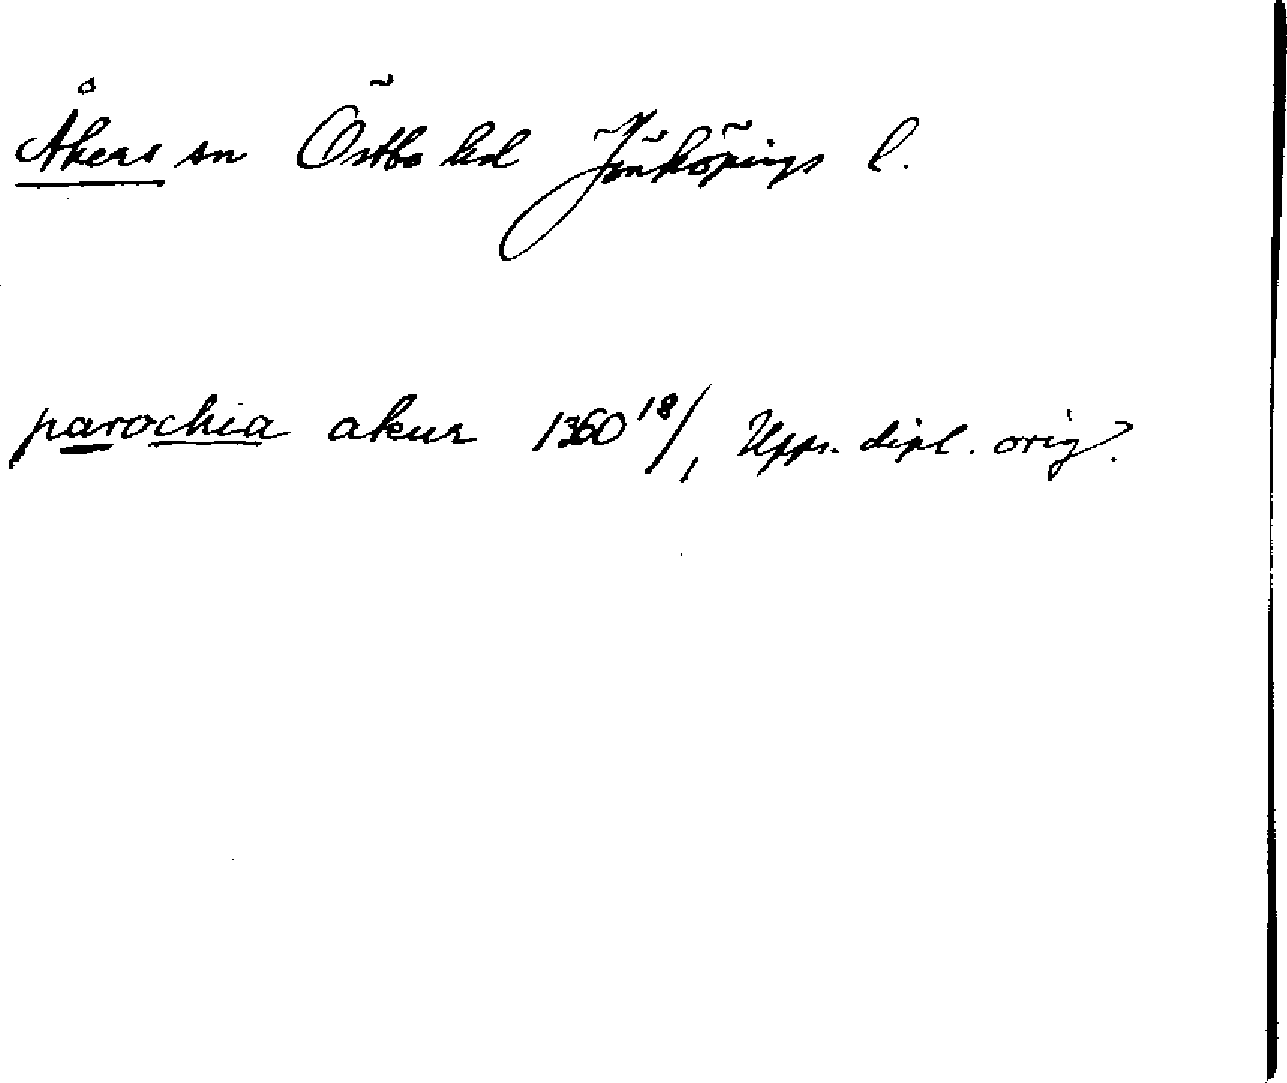 Åkers sn Östbo hd Jönköpings l.
parochia akur 1360 18/1 Upps. dipl. orig.